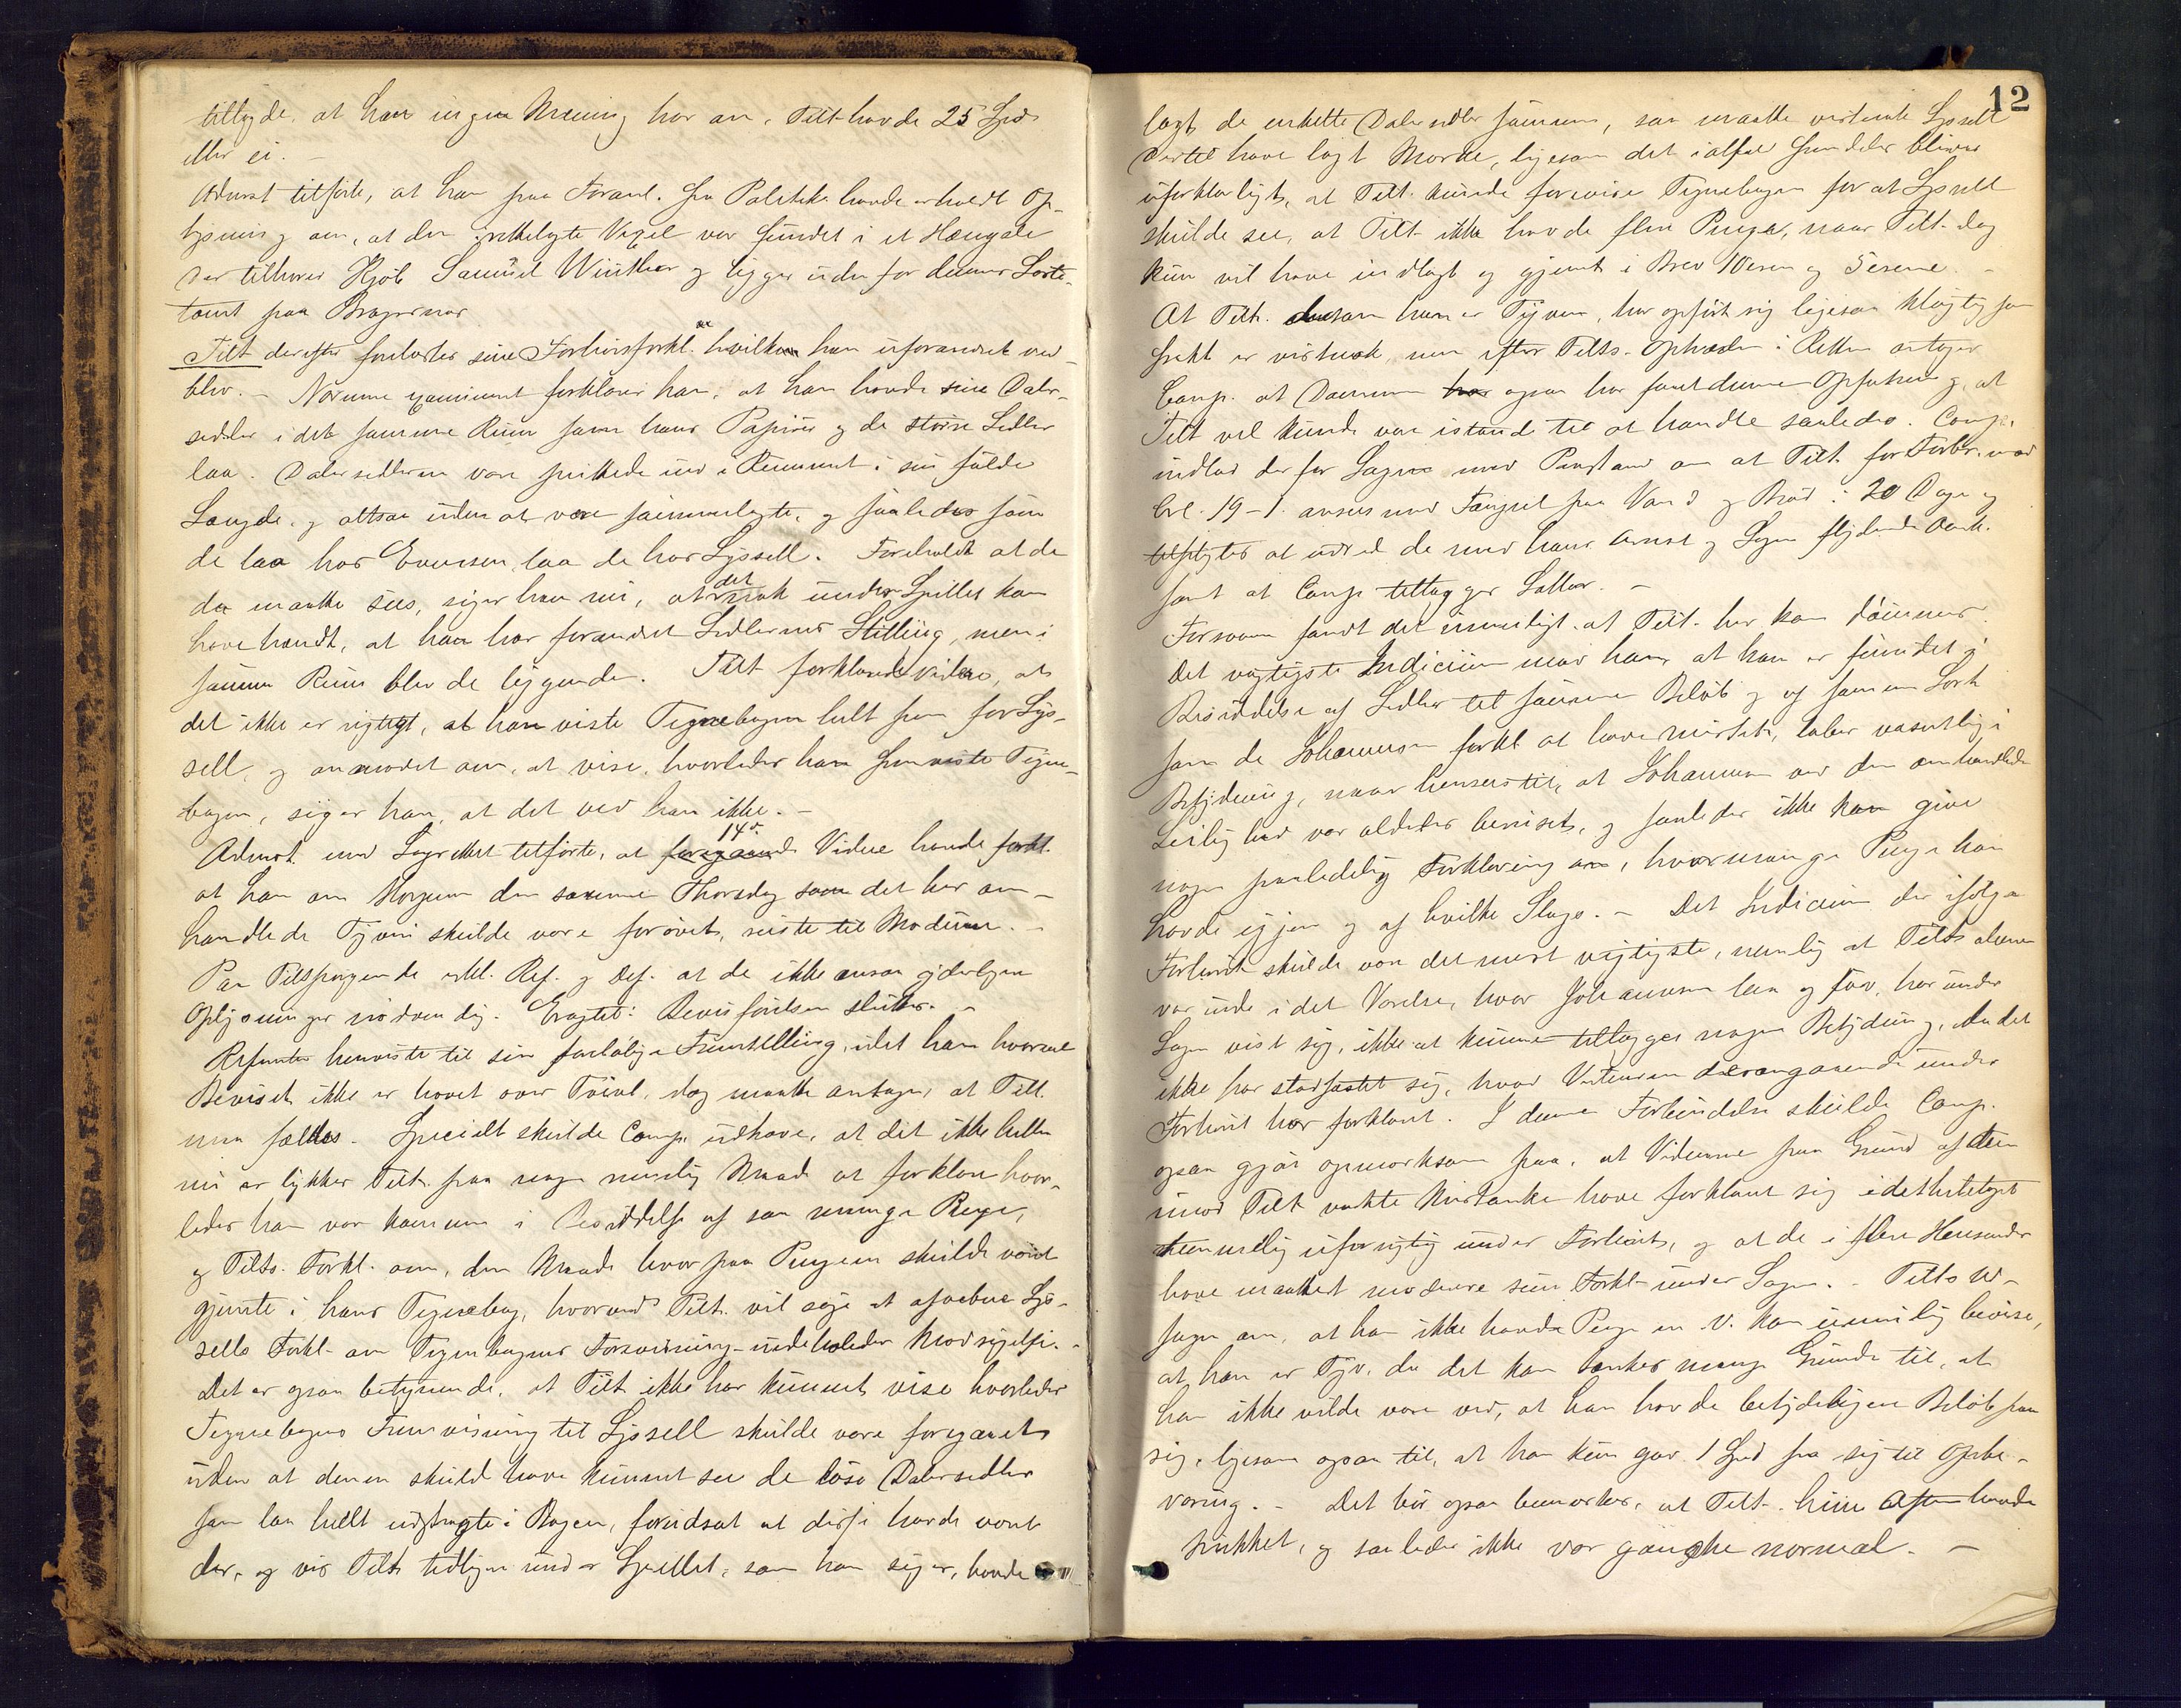 tilføyde, at han ingen Mening har om, Tilt. havde 25 Spd
eller ei. –
Admst tilførte, at han paa Foranl. fra Politiets havde erholdt Op-
lysning om, at den omtalte Vexel var fundet i et Hængale
der tilhører Kjøb Samuel Winther og ligger udenfor dennes Løkke
tomt paa Bragernæs
Tilt derefter forelæstes sine Forhørsforkl. hvilke han uforandret ved-
blev. – Nærmere examineret forklarer han, at han havde sine Daler-
sedler i det samme Rum som hans Papirer og de større Sedler
laa. Dalersedlerne vare puttede ind i Rummet i sin fulde
Længde, og altsaa uden at være sammenlagte, og saaledes som
de laa hos Evensen, laa de hos Lyssell. Foreholdt at de
da maatte sees, siger han nu, at det nok under Spillet kan
have hændt, at han har forandret Sedlernes Stilling, men i
samme Rum blev de liggende. Tilt forklarede videre, at
det ikke er rigtigt, at han viste Tegnebogen helt frem for Lys-
sell, og anmodet om, at vise, hvorledes han fremviste Tegne-
bogen, siger han, at det ved han ikke. –
Admst. med Lagrettet tilførte, at 14de Vidne havde forkl.
at han om Morgenen den samme Thorsdag som det her om-
handlede Tyveri skulde være forøvet, reiste til Modum. –
Paa Tilspørgende erkl. Ref. og Def. at de ikke ansaa yderligere
Oplysninger nødvendig. Eragtet: Bevisførelsen sluttes. –
Referenten henviste til sin foreløbige Fremstilling, idet han hvorvel
Beviset ikke er hævet over Tvivl, dog maatte antage, at Tilt.
maa fældes. Specielt skulde Comp. udhæve, at det ikke heller
nu er lykkes Tilt. paa nogen rimelig Maade at forklare hvor-
ledes han var kommen i Besiddelse af saa mange Penge,
og Tilts. Forkl. om, den Maade hvorpaa Pengene skulde været
gjemte i hans Tegnebog, hvorved Tilt. vil søge at afvæbne Lys-
sells Forkl. om Tegnebogens Forevisning – indeholder Modsigelse. –
Det er ogsaa betegnende, at Tilt ikke har kunnet vise hvorledes
Tegnebogens Fremvisning til Lyssell skulde være foregaaet
uden at denne skuld have kunnet see de løse Dalersedler
som laa helt udstragte i Bogen, forudsat at disse havde været
der, og vis Tilts tidligere under Spillet, som han siger, havde
12
lagt de enkelte Dalersedler sammen, saa maatte vistnok Lyssell
dertil have lagt Mærke, ligesom det ialfald fremdeles bliver
uforklarligt, at Tilt. kunde forevise Tegnebogen for at Lyssell
skulde see, at Tilt. ikke havde flere Penge, naar Tilt. dog
kun vil have indlagt og gjemt i Brev 10eren og 5erene. –
At Tilt. dersom han er Tyven, har opført sig ligesaa kløgtig som
frækt er vistnok, men efter Tilts. Optræden i Retten antager
Comp. at Dommerne ogsaa har faaet denne Opfatning, at
Tilt vel kunde være istand til at handle saaledes. Comp.
indlod derfor Sagen med Paastand om at Tilt. for Forbr. mod
Crl. 19–1. ansees med Fængsel paa Vand og Brød i 20 Dage og
tilpligtes at udrede de med hans Arrest og Sagen flydende Omk.
samt at Comp tillægges Sallær. –
Forsvaren fandt det umuligt, at Tilt. her kan dømmes.
Det vigtigste Indicium mod ham, at han er fundet i
Besiddelse af Sedler til samme Beløb og af samme Sort
som de Johannesen forkl. at have mistet, taber væsentlig i
Betydning, naar hensees til, at Johannesen ved den omhandlede
Leilighed var aldeles beruset, og saaledes ikke kan give
nogen paalidelig Forklaring om, hvormange Penge han
havde igjen og af hvilke Slags. – Det Indicium der ifølge
Forhørt skulde være det mest vigtigste, nemlig at Tilts alene
var inde i det Værelse, hvor Johannesen laa og sov, har under
Sagen vist sig, ikke at kunne tillægges nogen Betydning, da det
ikke har stadfæstet sig, hvad Vidnerne derangaaende under
Forhøret har forklaret. I denne Forbindelse skulde Comp.
ogsaa gjøre opmærksom paa, at Vidnerne paa Grund af den
imod Tilt vakte Mistanke have forklaret sig idethele taget
temmelig uforsigtig under Forhøret, og at de i flere Henseender
have maattet moderere sine Forkl. under Sagen. – Tilts Ud-
sagn om, at han ikke havde Penge m. v. kan umulig bevise,
at han er Tyv, da det kan tænkes mange Grunde til, at
han ikke vilde være ved, at han havde betydeligere Beløb paa
sig, ligesom ogsaa til, at han kun gav 1 Spd fra sig til Opbe-
varing. – Det bør ogsaa bemærkes, at Tilt. hiin Aften havde
drukket, og saaledes ikke var ganske normal. –